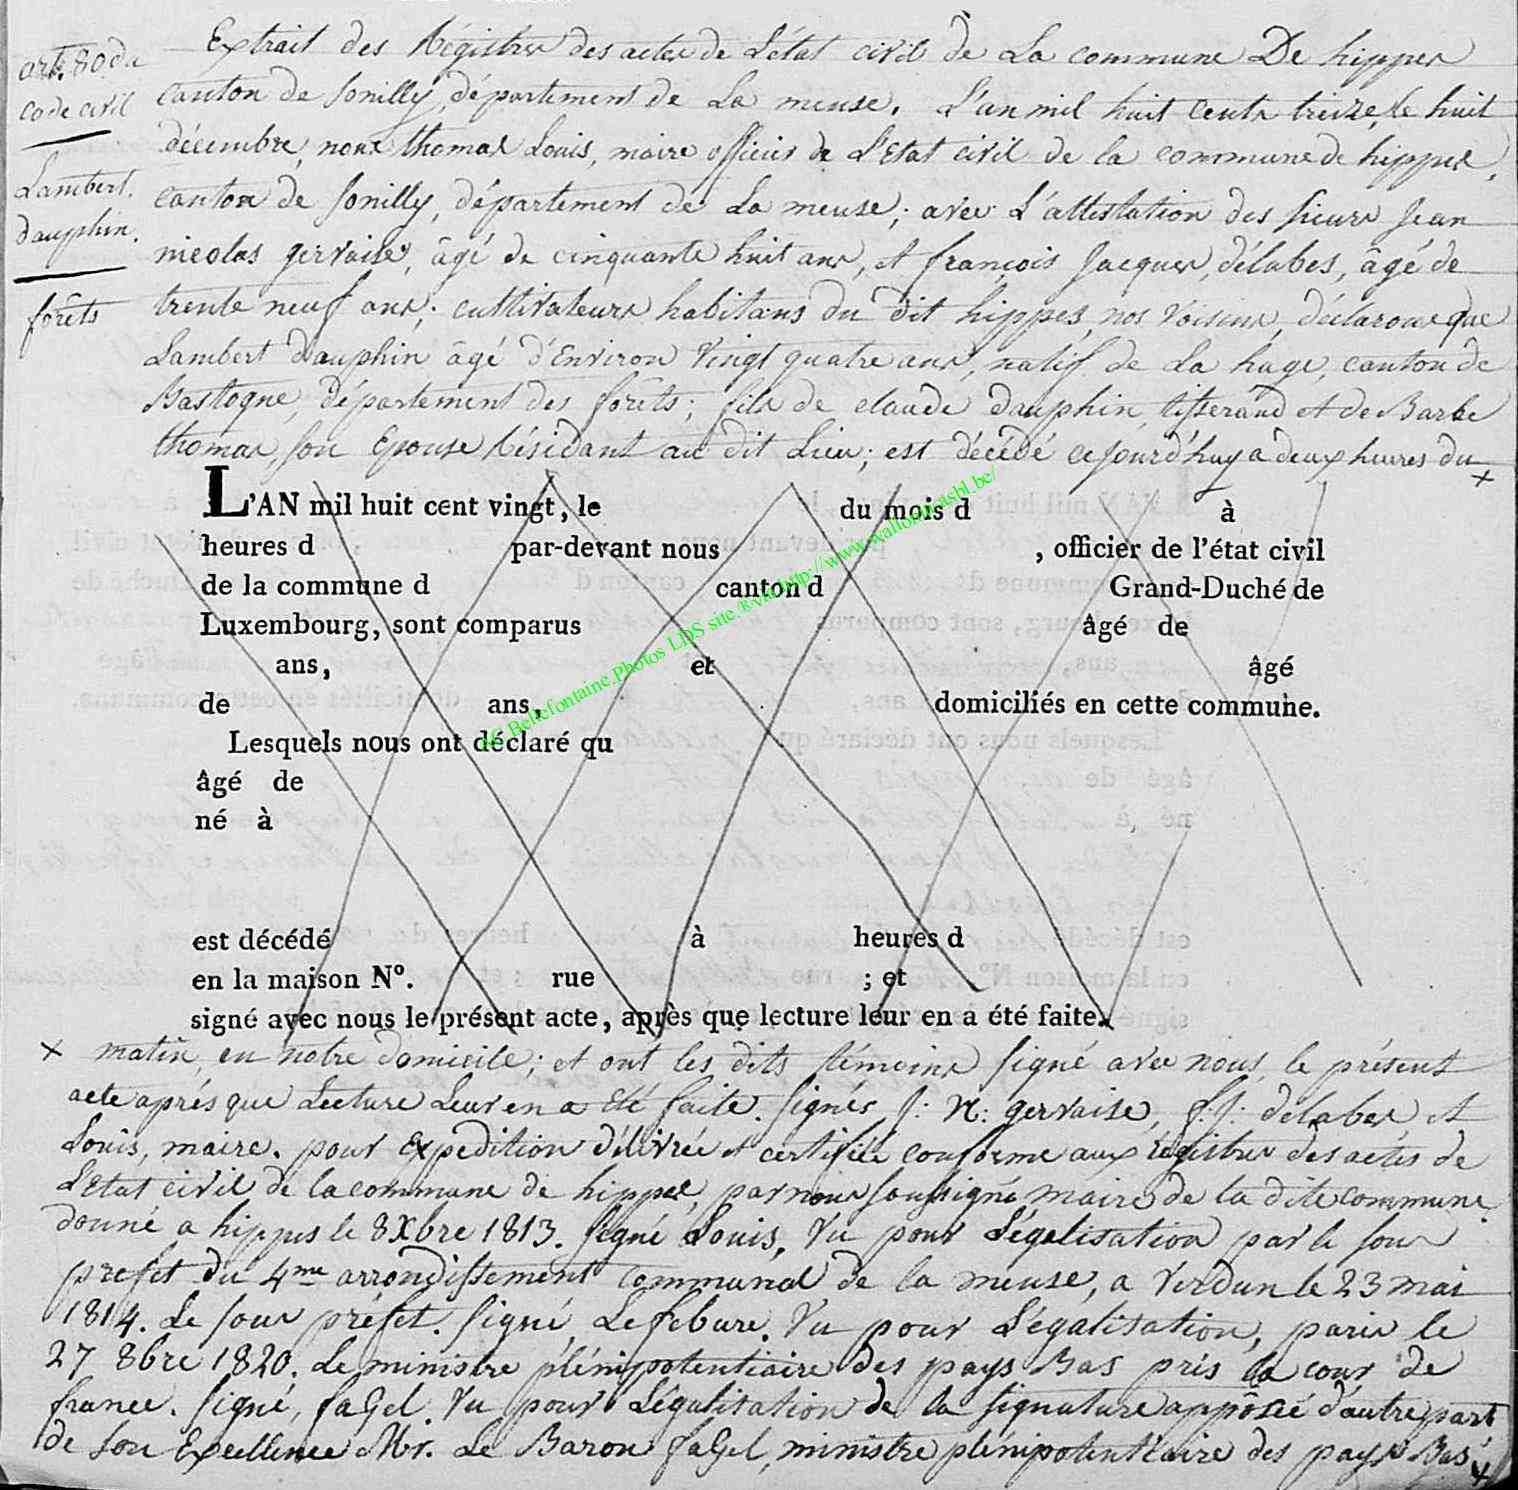 art. 80 du
code civil
Lambert.
dauphin.
forêts
Extrait des Régistres des actes de L'état civil de La commune De hippes
canton de Souilly, département de La meuse. L'an mil huit cents treize, le huit
décembre, nous thomas Louis, maire officier de L'Etat civil de la commune de hippes,
canton de Souilly, département de La meuse; avec L'attestation des sieurs Jean
nicolas gervaise, âgé de cinquante huit ans, et françois Jacques, délabes, âgé de
trente neuf ans; cultivateurs habitans du dit hippes, nos voisins, déclarons que
Lambert dauphin âgé d'Environ vingt quatre ans, natif de La hage, canton de
Bastogne, département des forêts; fils de claude dauphin, tisserand et de Barbe
thomas, son Epouse Résidant au dit Lieu; est décédé cejourd'huy a deux heures du
+
L'AN mil huit cent vingt, le du mois d à
heures d par-devant nous , officier de l'état civil
de la commune d canton d Grand-Duché de
Luxembourg, sont comparus âgé de
ans, et âgé
de ans, domiciliés en cette commune.
Lesquels nous ont déclaré qu
âgé de
né à
est décédé à heures d
en la maison N°. rue ; et
signé avec nous le présent acte, après que lecture leur en a été faite.
AC Bellefontaine Photos LDS site via http://www.wallonia-asbl.be/
+ matin, en notre domicile; et ont les dits témoins signé avec nous, le présent
acte aprés que Lecture Leur en a été faite. signés J: N: gervaise, f: J: delabes, et
Louis, maire. pour Expedition délivrée et certifiée conforme aux Régistres des actes de
L'Etat civil de la commune de hippes, par nous soussigné maire de la dite commune.
donné a hippes le 8 Xbre 1813. signé Louis. Vu pour Légalisation par le sous
prefet du 4me arrondissement communal de la meuse, a Verdun le 23 mai
1814. Le sous préfet. signé, Lefebure. Vu pour Légalisation, paris le
27 8bre 1820. Le ministre plénipotentiaire des pays Bas près la cour de
france. signé, faGel. Vu pour Légalisation de la signature apposée d'autre part
de son Excellence Mr. Le Baron faGel, ministre plénipotentiaire des pays-Bas
+